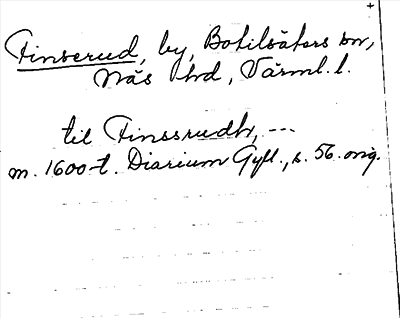 Finserud, by, Botilsäters sn,
Näs hd, Värml. l.
til Finssrudh, ---
m. 1600-t. Diarium Gyll., s. 56. orig.